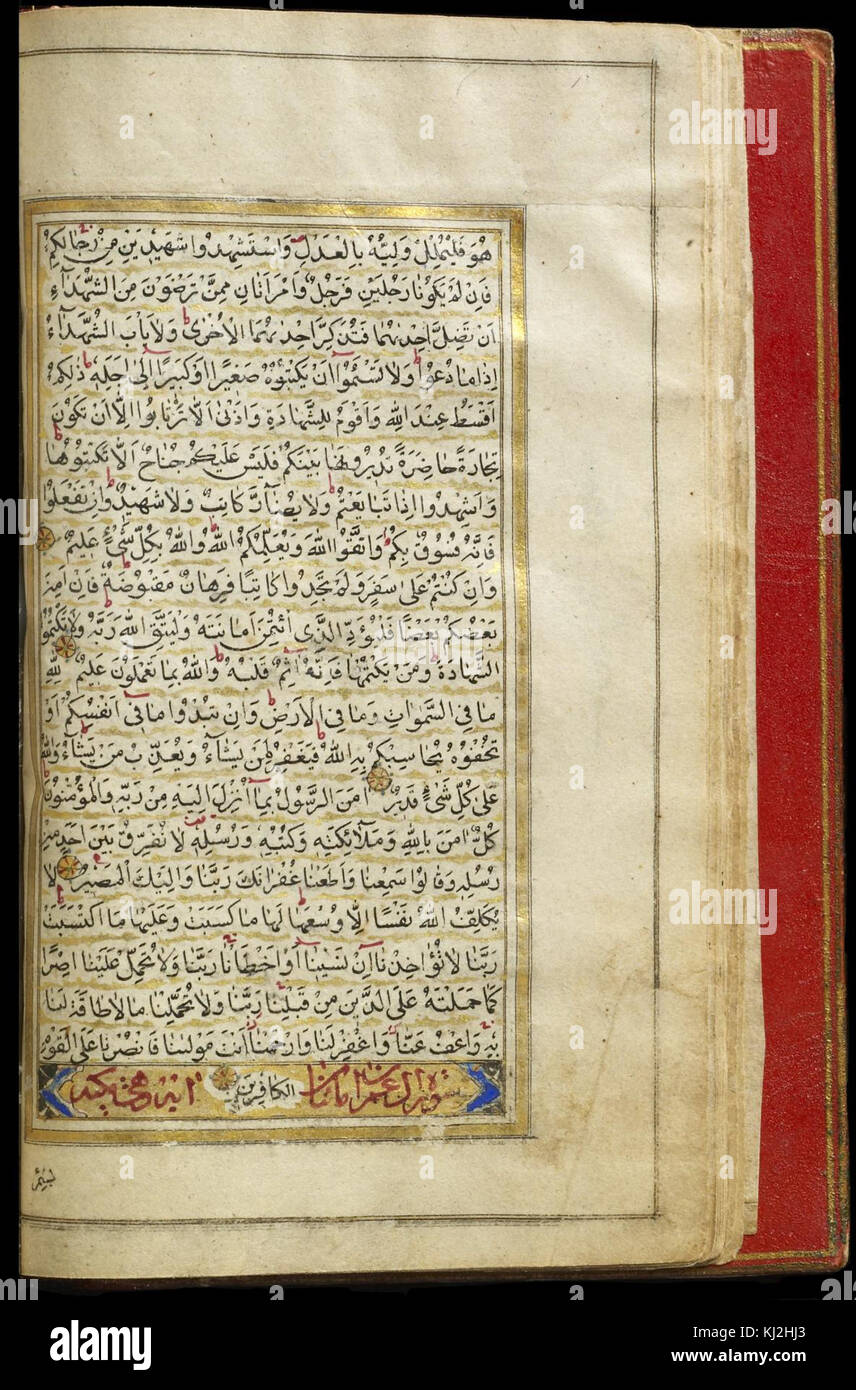 هُوَ فَلْيُمْلِلْ وَلِيُّهُ بِالْعَدْلِ وَاسْتَشْهِدُوا شَهِيدَيْنِ مِنْ رِجَالِكُمْ
فَاِنْ لَمْ يَكُونَا رَجُلَيْنِ فَرَجُلٌ وَامْرَاَتَانِ مِمَّنْ تَرْضَوْنَ مِنَ الشُّهَدَاءِ
اَنْ تَضِلَّ اِحْدٰيهُمَا فَتُذَكِّرَ اِحْدٰيهُمَا الْاُخْرٰى وَلَا يَاْبَ الشُّهَدَاءُ
اِذَا مَا دُعُوا وَلَا تَسْئَمُوا اَنْ تَكْتُبُوهُ صَغِيرًا اَوْ كَبِيرًا اِلٰى اَجَلِهِ ذٰلِكُمْ
اَقْسَطُ عِنْدَ اللّٰهِ وَاَقْوَمُ لِلشَّهَادَةِ وَاَدْنٰى اَلَّا تَرْتَابُوا اِلَّا اَنْ تَكُونَ
تِجَارَةً حَاضِرَةً تُدِيرُونَهَا بَيْنَكُمْ فَلَيْسَ عَلَيْكُمْ جُنَاحٌ اَلَّا تَكْتُبُوهَا
وَاَشْهِدُوا اِذَا تَبَايَعْتُمْ وَلَا يُضَارَّ كَاتِبٌ وَلَا شَهِيدٌ وَاِنْ تَفْعَلُوا
فَاِنَّهُ فُسُوقٌ بِكُمْ وَاتَّقُوا اللّٰهَ وَيُعَلِّمُكُمُ اللّٰهُ وَاللّٰهُ بِكُلِّ شَيْءٍ عَلِيمٌ
وَاِنْ كُنْتُمْ عَلٰى سَفَرٍ وَلَمْ تَجِدُوا كَاتِبًا فَرِهَانٌ مَقْبُوضَةٌ فَاِنْ اَمِنَ
بَعْضُكُمْ بَعْضًا فَلْيُؤَدِّ الَّذِى اؤْتُمِنَ اَمَانَتَهُ وَلْيَتَّقِ اللّٰهَ رَبَّهُ وَلَا تَكْتُمُوا
الشَّهَادَةَ وَمَنْ يَكْتُمْهَا فَاِنَّهُ اٰثِمٌ قَلْبُهُ وَاللّٰهُ بِمَا تَعْمَلُونَ عَلِيمٌ لِلّٰهِ
مَا فِى السَّمٰوَاتِ وَمَا فِى الْاَرْضِ وَاِنْ تُبْدُوا مَا فِى اَنْفُسِكُمْ اَوْ
تُخْفُوهُ يُحَاسِبْكُمْ بِهِ اللّٰهُ فَيَغْفِرُ لِمَنْ يَشَاءُ وَيُعَذِّبُ مَنْ يَشَاءُ وَاللّٰهُ
عَلٰى كُلِّ شَيْءٍ قَدِيرٌ اٰمَنَ الرَّسُولُ بِمَا اُنْزِلَ اِلَيْهِ مِنْ رَبِّهِ وَالْمُؤْمِنُونَ
كُلٌّ اٰمَنَ بِاللّٰهِ وَمَلَائِكَتِهِ وَكُتُبِهِ وَرُسُلِهِ لَا نُفَرِّقُ بَيْنَ اَحَدٍ مِنْ
رُسُلِهِ وَقَالُوا سَمِعْنَا وَاَطَعْنَا غُفْرَانَكَ رَبَّنَا وَاِلَيْكَ الْمَصِيرُ لَا
يُكَلِّفُ اللّٰهُ نَفْسًا اِلَّا وُسْعَهَا لَهَا مَا كَسَبَتْ وَعَلَيْهَا مَا اكْتَسَبَتْ
رَبَّنَا لَا تُؤَاخِذْنَا اِنْ نَسِينَا اَوْ اَخْطَاْنَا رَبَّنَا وَلَا تَحْمِلْ عَلَيْنَا اِصْرًا
كَمَا حَمَلْتَهُ عَلَى الَّذِينَ مِنْ قَبْلِنَا رَبَّنَا وَلَا تُحَمِّلْنَا مَا لَا طَاقَةَ لَنَا
بِهِ وَاعْفُ عَنَّا وَاغْفِرْ لَنَا وَارْحَمْنَا اَنْتَ مَوْلٰينَا فَانْصُرْنَا عَلَى الْقَوْمِ
سورة ال عمران الكافرين
بِسْمِ
alamy
Image ID: KJ2HJ3
www.alamy.com